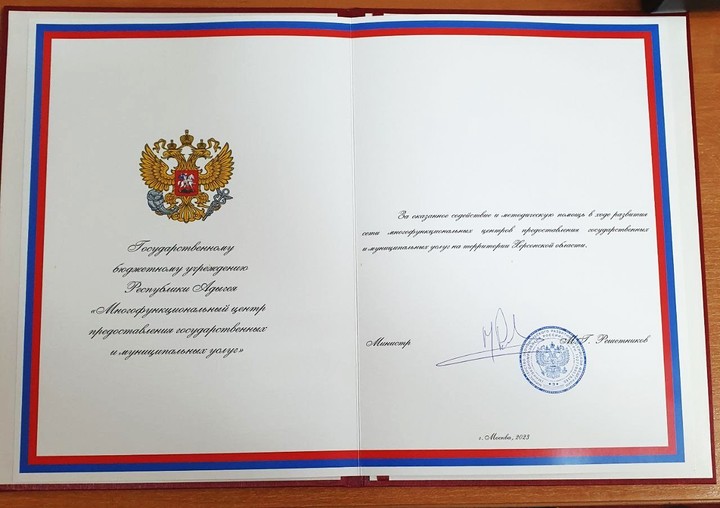 Государственному
бюджетному учреждению
Республики Адыгея
«Многофункциональный центр
предоставления государственных
и муниципальных услуг»
За оказанное содействие и методическую помощь в ходе развития
сети многофункциональных центров предоставления государственных
и муниципальных услуг на территории Херсонской области.
Министр
М.Г. Решетников
г. Москва, 2023